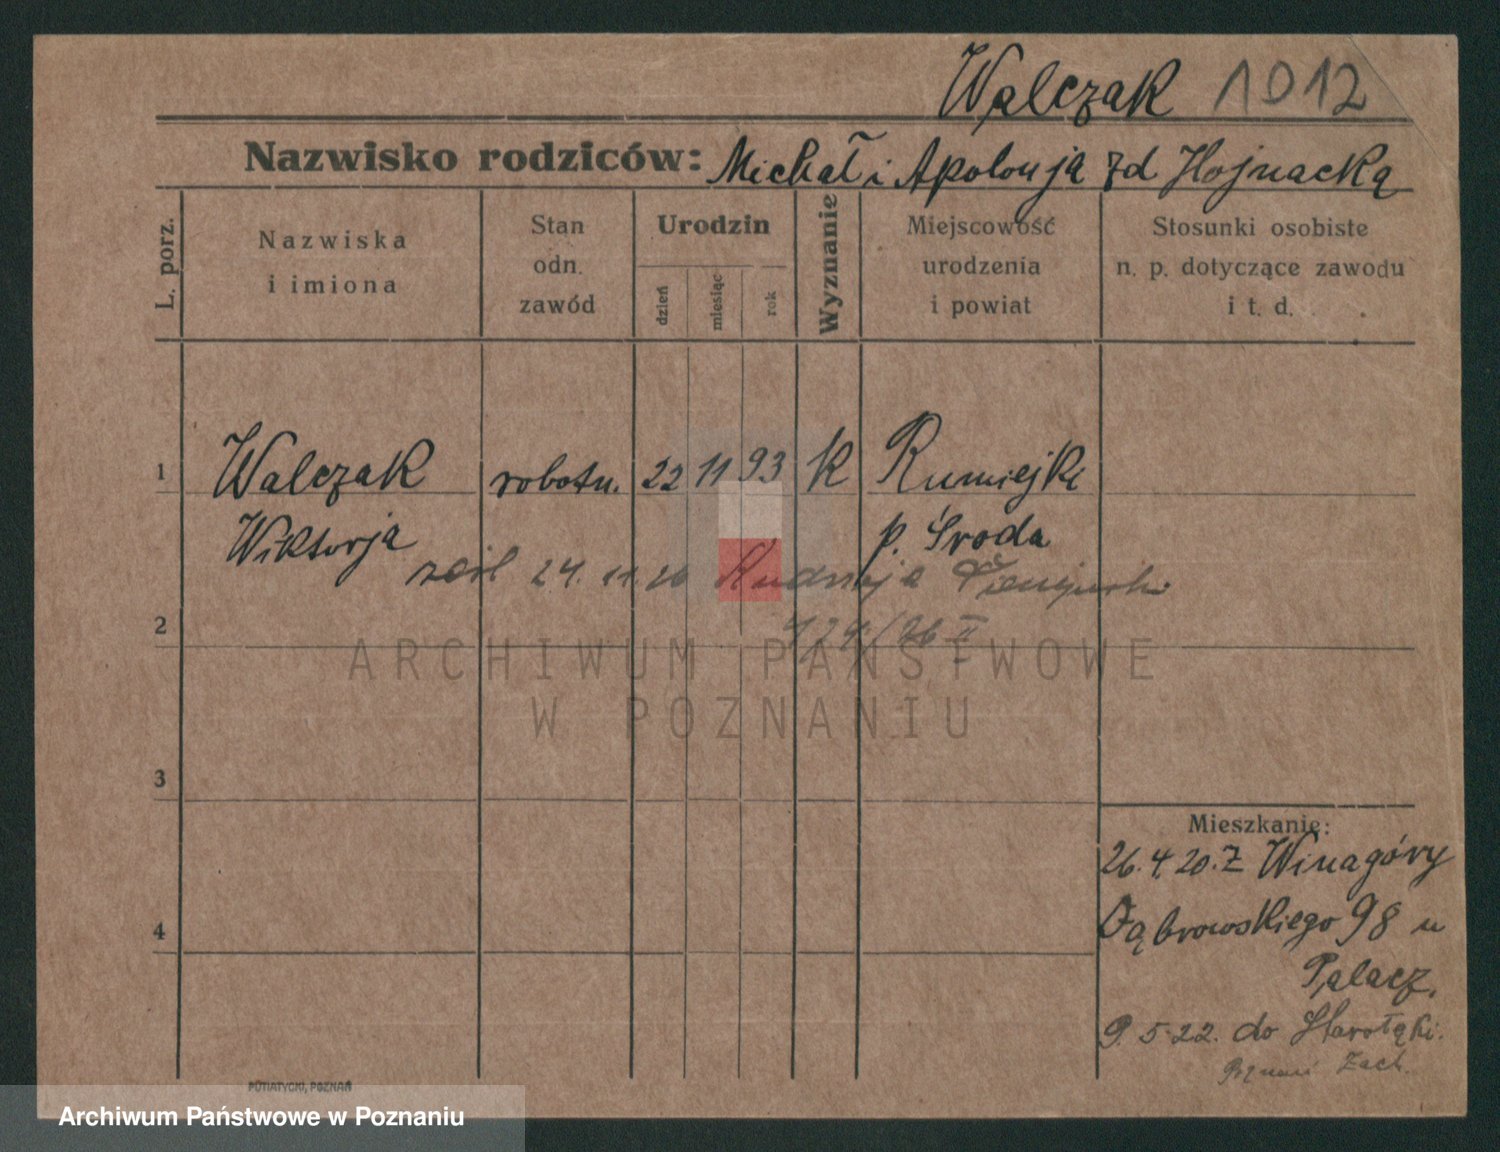 Walczak 1012
Nazwisko rodziców: Michał i Apolonja zd Hojnacką
L. porz.
Nazwiska
i imiona
Stan
odn.
zawód
Urodzin
dzień
miesiąc
rok
Wyznanie
Miejscowość
urodzenia
i powiat
Stosunki osobiste
n. p. dotyczące zawodu
i t. d.
1 Walczak robotn. 22 11 93 k Rumiejki
Wiktorja p. Środa
24. 11. 26
2
ARCHIWUM PAŃSTWOWE
W POZNANIU
3
Mieszkanie:
26. 4. 20. z Winagóry
4 Dąbrowskiego 98 u
Palacz.
9. 5. 22. do Starołęki.
Poznań Zach.
PUTIATYCKI, POZNAŃ
Archiwum Państwowe w Poznaniu